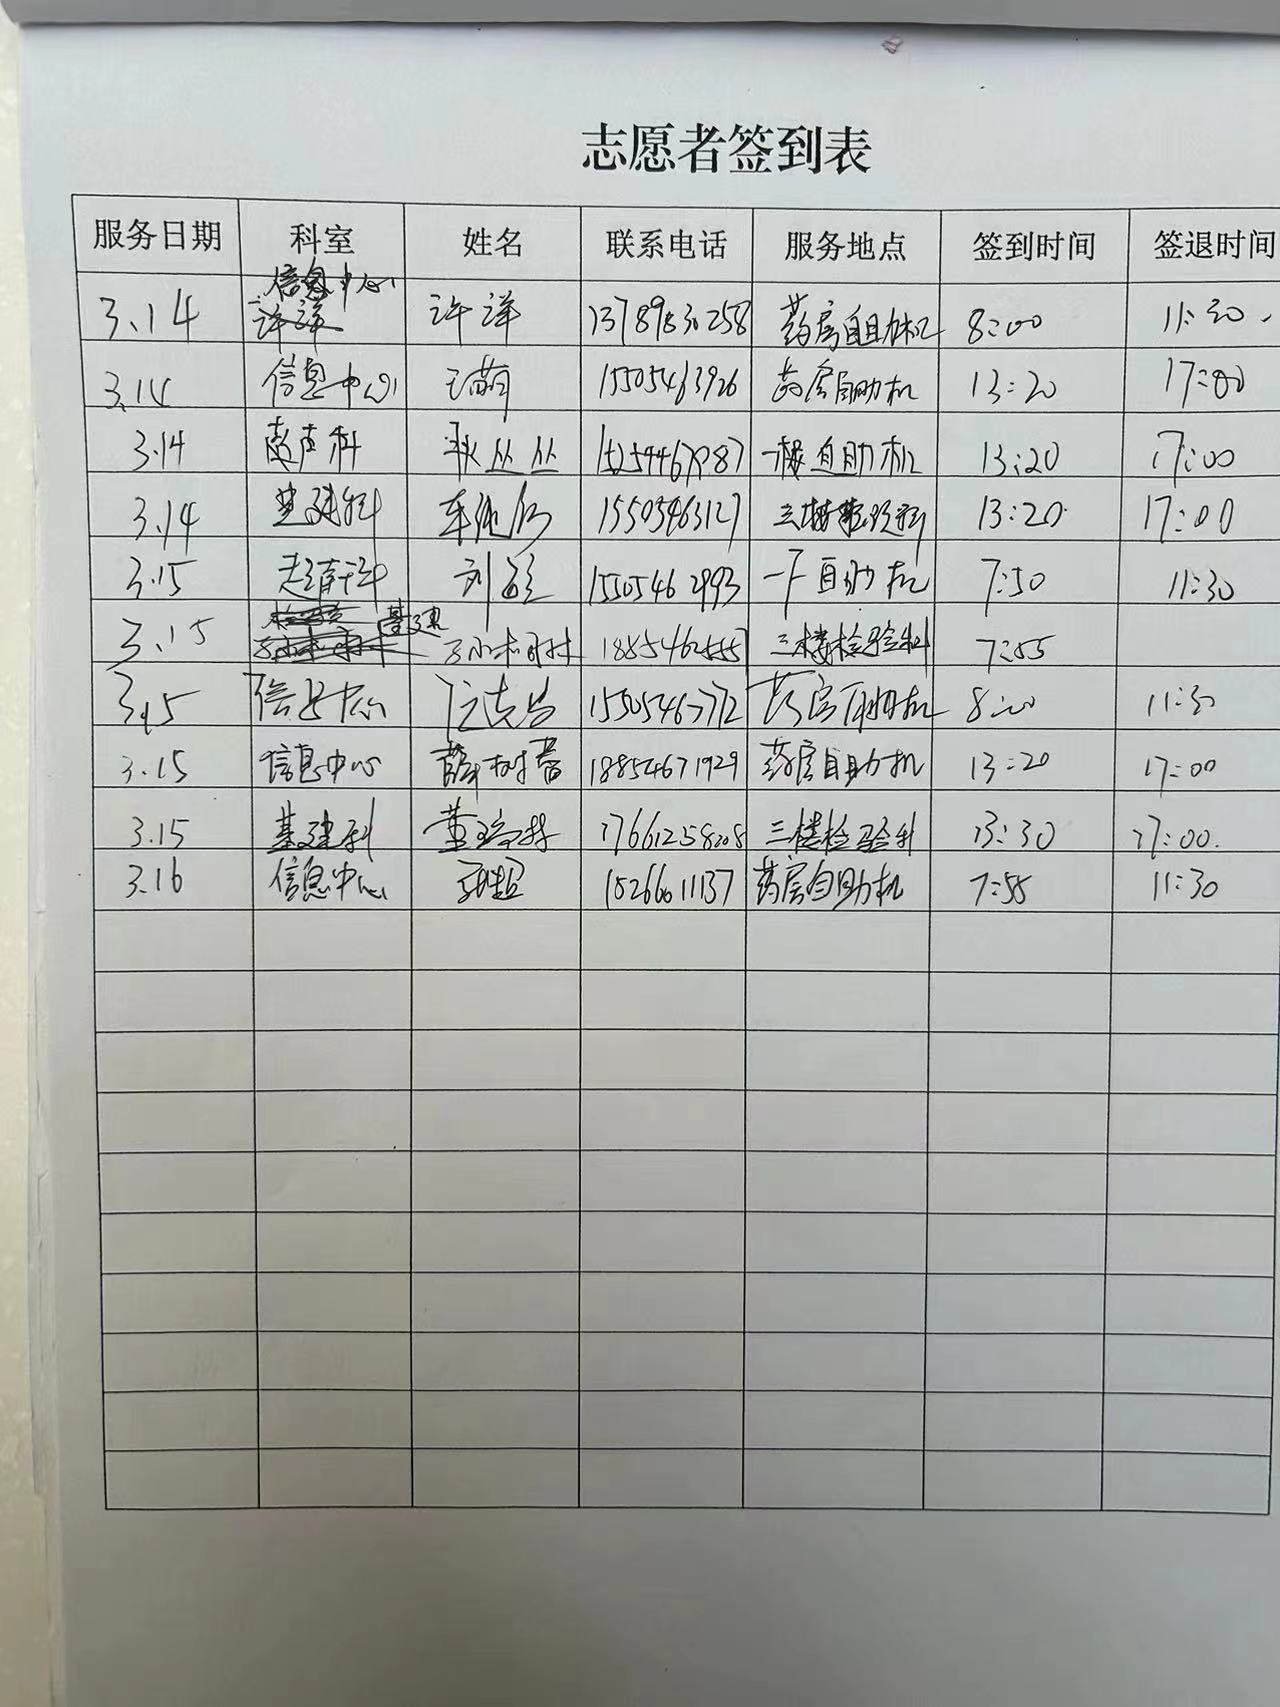 志愿者签到表
服务日期 科室 姓名 联系电话 服务地点 签到时间 签退时间
3.14 信息中心 许洋 13789830258 药房自助机 8:00 11:30
3.14 信息中心 15505463926 药房自助机 13:20 17:00
3.14 超声科 耿丛丛 一楼自助机 13:20 17:00
3.14 基建科 15505463127 13:20 17:00
3.15 刘 15505462993 自助机 7:50 11:30
3.15 基建 三楼检验科 7:55
3.15 信息中心 药房自助机 8:00 11:30
3.15 信息中心 薛树蓉 18854671929 药房自助机 13:20 17:00
3.15 基建科 董 17661258208 三楼检验科 13:30 17:00
3.16 信息中心 15266011137 药房自助机 7:55 11:30